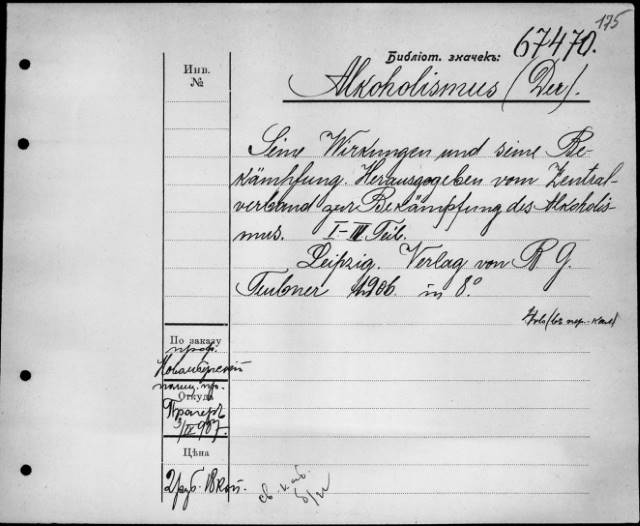 175
Библіот. значекъ: 67470.
Инв.
№
Alkoholismus (Der).
Seine Wirkungen und seine Be-
kämpfung. Herausgegeben vom Zentral-
verband zur Bekämpfung des Alkoholis-
mus. I-III Teil.
Leipzig. Verlag von B. G.
Teubner 1906. in 8°
По заказу
проф.
Откуда
Прагеръ
Цѣна
2 руб. 18 коп.